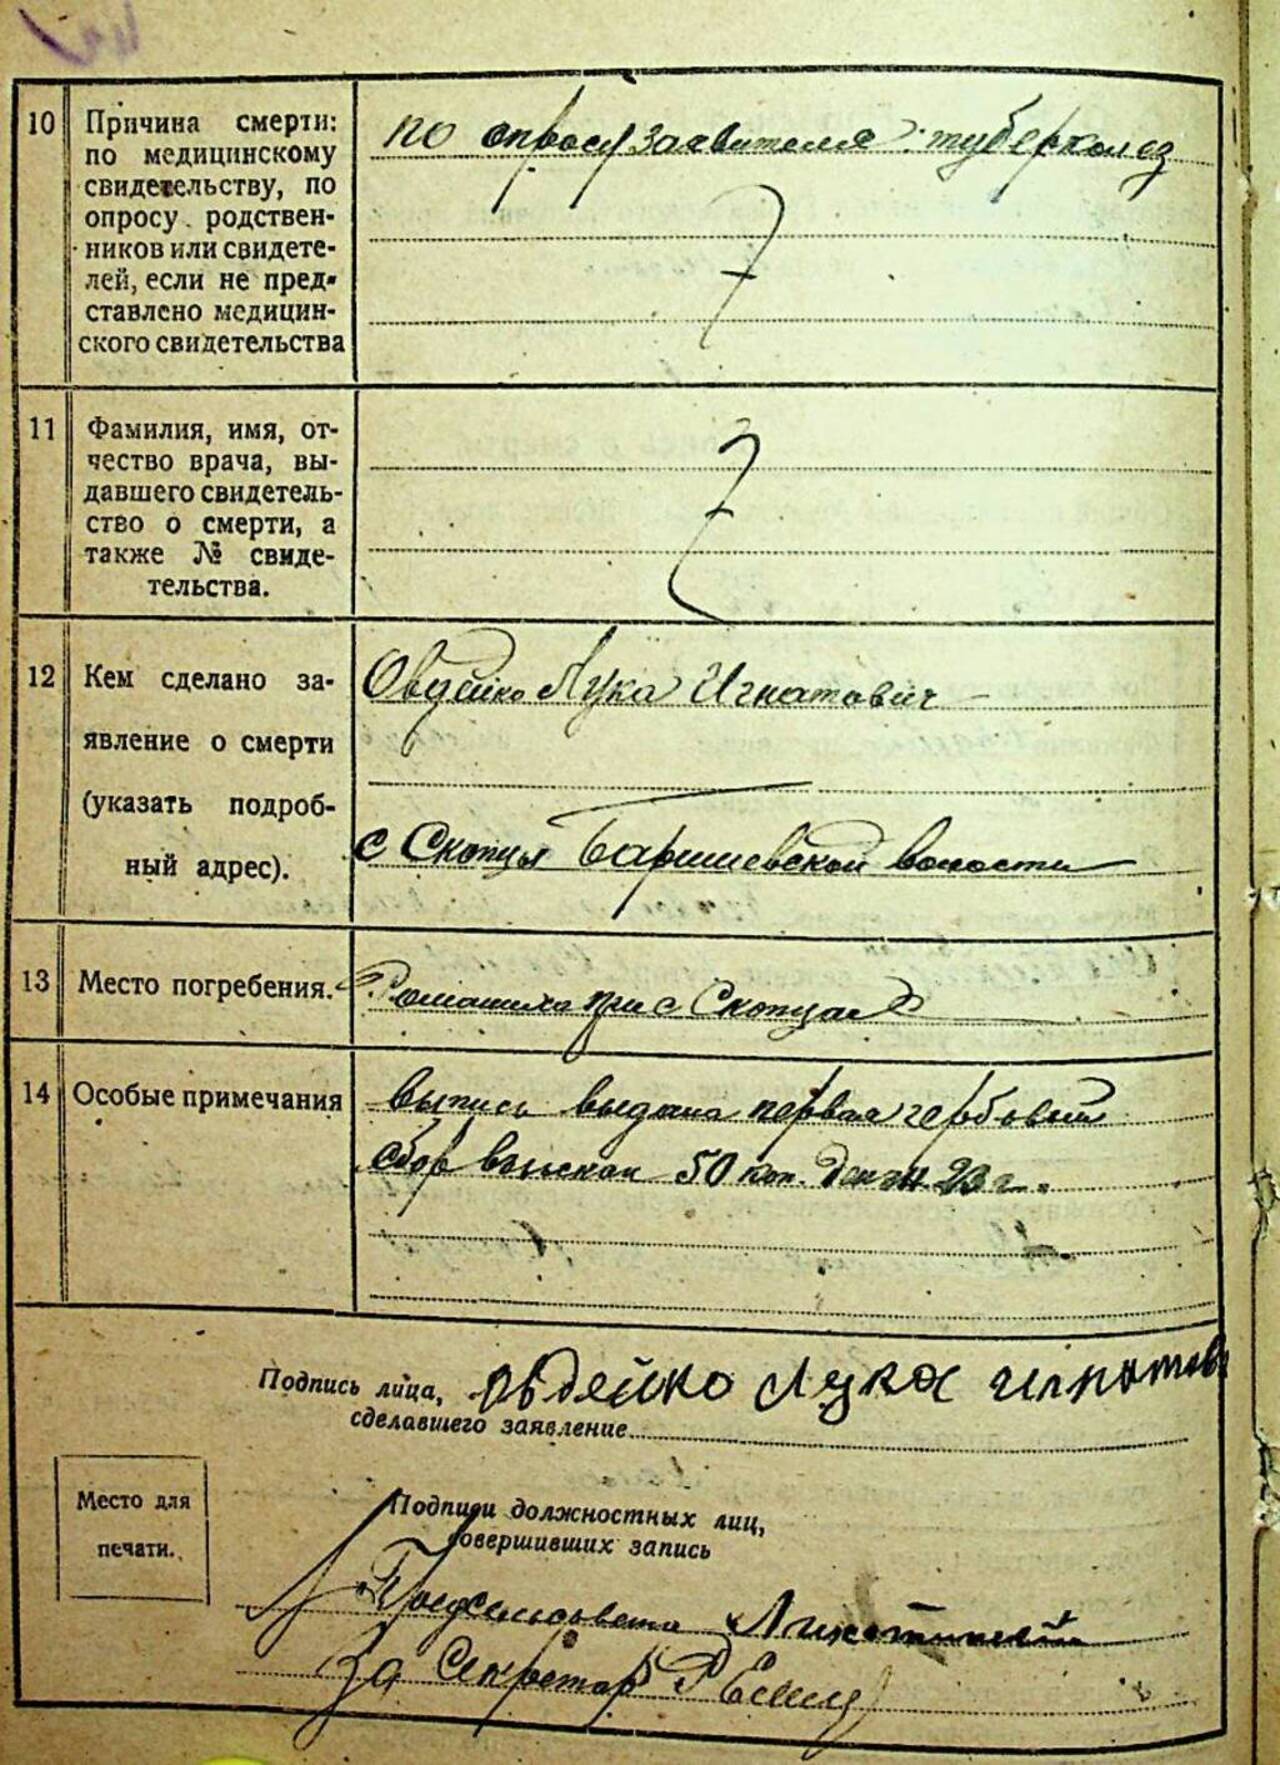 10
Причина смерти:
по медицинскому
свидетельству, по
опросу родствен-
ников или свидете-
лей, если не пред-
ставлено медицин-
ского свидетельства
по опросу заявителя: туберколез
11
Фамилия, имя, от-
чество врача, вы-
давшего свидетель-
ство о смерти, а
также № свиде-
тельства.
12
Кем сделано за-
явление о смерти
(указать подроб-
ный адрес).
Овдейко Лука Игнатович
с Скопцы Баришевской волости
13
Место погребения.
при с Скопцах
14
Особые примечания
выпись выдана первая гербовый
сбор взыскан 50 коп. 23 г.
Подпись лица,
сделавшего заявление
овдейко Лука
Место для
печати.
Подписи должностных лиц,
совершивших запись
Предсельсовета
За Секретар